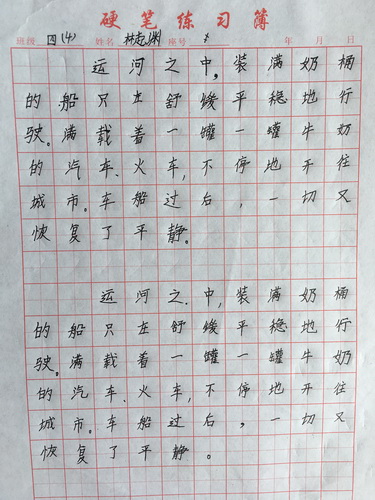 硬笔练习簿
班级 四(4) 姓名 林起渊 座号 年 月 日
运河之中,装满奶桶
的船只在舒缓平稳地行
驶。满载着一罐一罐牛奶
的汽车、火车,不停地开往
城市。车船过后,一切又
恢复了平静。
运河之中,装满奶桶
的船只在舒缓平稳地行
驶。满载着一罐一罐牛奶
的汽车、火车,不停地开往
城市。车船过后,一切又
恢复了平静。